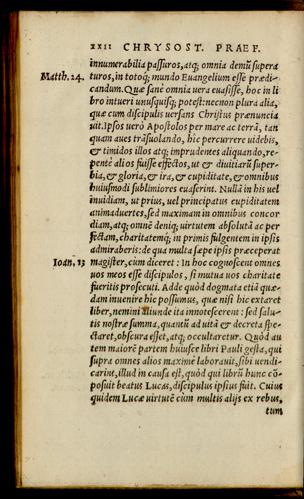 XXII CHRYSOST. PRAEF.
innumerabilia passuros, atq; omnia demũ supera
Matth. 24. turos, in totoq; mundo Euangelium esse prædi-
candum. Quæ sanè omnia uera euasisse, hoc in li
bro intueri unusquisq; potest: necnon plura alia,
quæ cum discipulis uersans Christus prænuncia
uit. Ipsos uerò Apostolos per mare ac terrã, tan
quam aues trãsuolando, hic percurrere uidebis,
& timidos illos atq; imprudentes aliquando, re-
pentè alios fuisse effectos, ut & diuitiarũ super-
bia, & gloria, & ira, & cupiditate, & omnibus
huiusmodi sublimiores euaserint. Nullã in his uel
inuidiam, ut prius, uel principatus cupiditatem
animaduertes, sed maximam in omnibus concor
diam, atq; omnẽ deniq; uirtutem absolutã ac per
fectam, charitatemq́; in primis fulgentem in ipsis
admiraberis: de qua multa sæpe ipsis præceperat
Ioan. 13 magister, cùm diceret: In hoc cognoscent omnes
uos meos esse discipulos, si mutua uos charitate
fueritis prosecuti. Adde quòd dogmata etiã quæ-
dam inuenire hîc possumus, quæ nisi hic extaret
liber, nemini aliunde ita innotescerent: sed salu-
tis nostræ summa, quantũ ad uitã & decreta spe-
ctaret, obscura esset, atq; occultaretur. Quòd au
tem maiorẽ partem huiusce libri Pauli gesta, qui
supra omnes alios maximè laborauit, sibi uendi-
carint, illud in causa est, quòd qui librũ hunc cõ-
posuit beatus Lucas, discipulus ipsius fuit. Cuius
quidem Lucæ uirtutẽ cùm multis alijs ex rebus,
tum